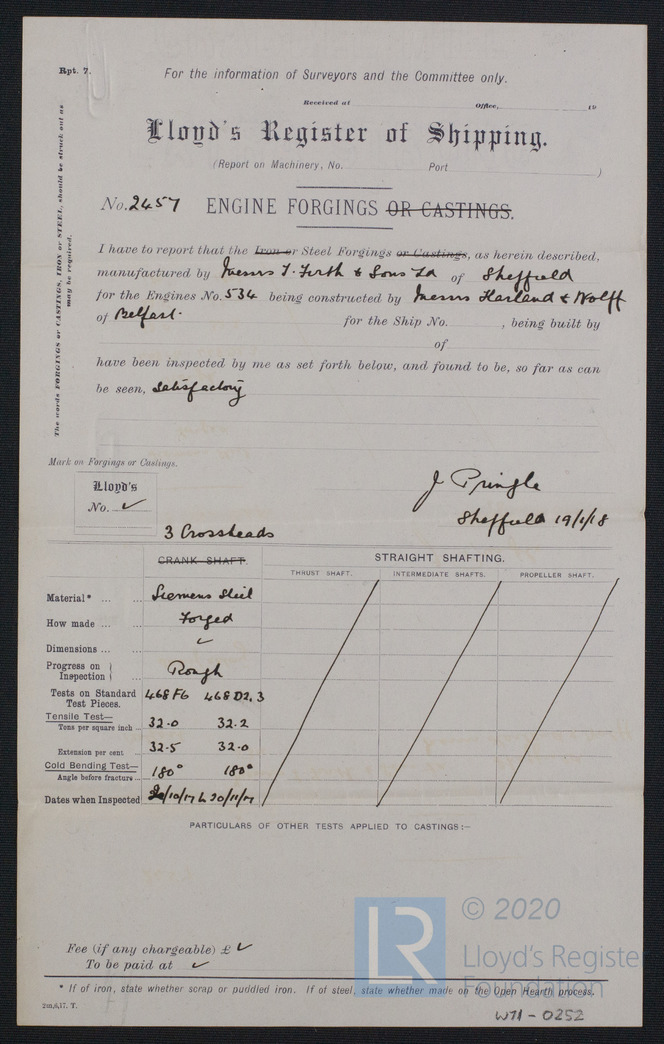 Rpt. 7.
For the information of Surveyors and the Committee only.
Received at Office, 19
Lloyd's Register of Shipping.
(Report on Machinery, No. Port )
No. 2457 ENGINE FORGINGS OR CASTINGS.
The words FORGINGS or CASTINGS, IRON or STEEL, should be struck out as may be required.
I have to report that the Iron or Steel Forgings or Castings, as herein described,
manufactured by Messrs T. Firth & Sons Ld of Sheffield
for the Engines No. 534 being constructed by Messrs Harland & Wolff
of Belfast. for the Ship No. , being built by
of
have been inspected by me as set forth below, and found to be, so far as can
be seen, satisfactory
Mark on Forgings or Castings.
Lloyd's
No. ✓
J Pringle
Sheffield 19/1/18
3 Crossheads
CRANK SHAFT. STRAIGHT SHAFTING.
THRUST SHAFT. INTERMEDIATE SHAFTS. PROPELLER SHAFT.
Material* ... ... Siemens Steel
How made ... ... Forged
Dimensions ... ✓
Progress on Inspection } ... Rough
Tests on Standard Test Pieces. 468F6 468D2.3
Tensile Test—
Tons per square inch .. 32.0 32.2
Extension per cent. 32.5 32.0
Cold Bending Test—
Angle before fracture ... 180° 180°
Dates when Inspected /10/17 to 20/11/17
PARTICULARS OF OTHER TESTS APPLIED TO CASTINGS:—
Fee (if any chargeable) £ ✓
To be paid at ✓
* If of iron, state whether scrap or puddled iron. If of steel, state whether made on the Open Hearth process.
2m,6,17. T.
LR
© 2020
Lloyd's Register
Foundation
W71-0252